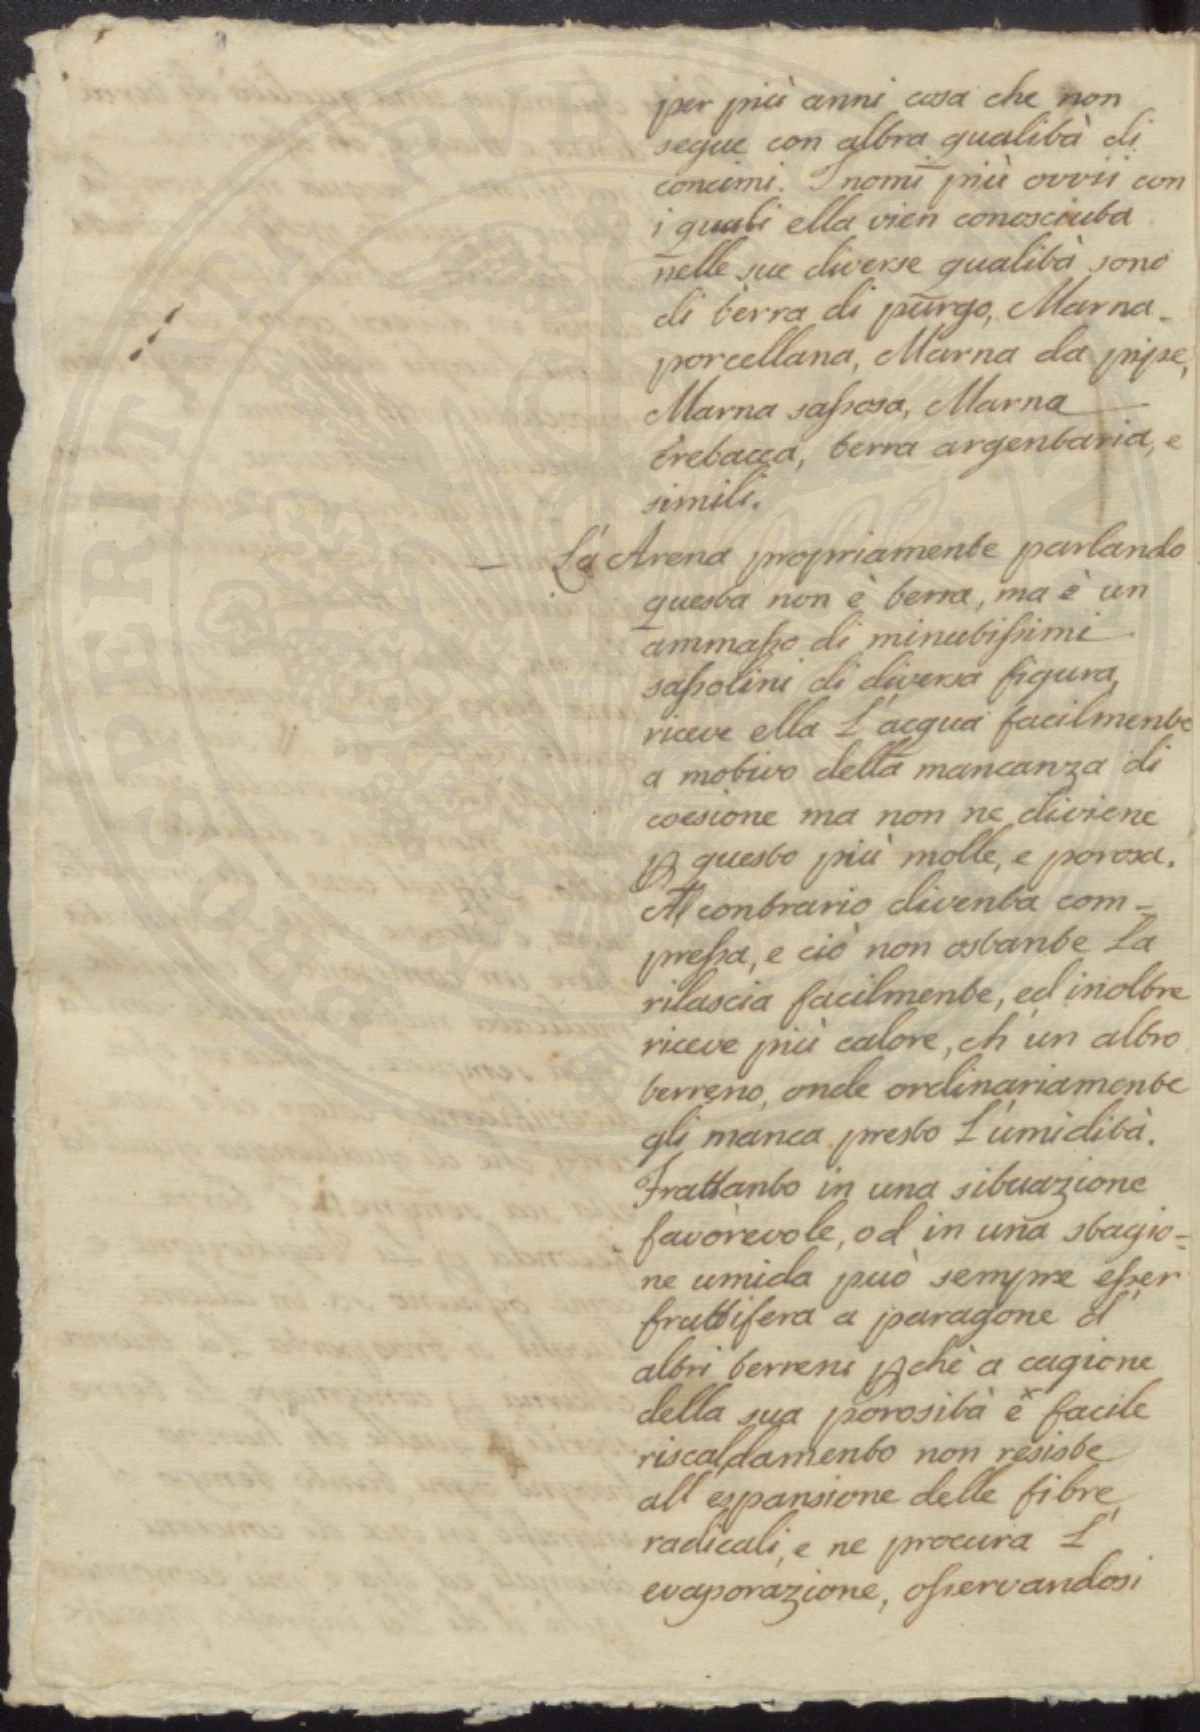 per più anni cosa che non
segue con altra qualità di
concimi. I nomi più ovvii con
i quali ella vien conosciuta
nelle sue diverse qualità sono
di terra di purgo, Marna
porcellana, Marna da pipe,
Marna saſsosa, Marna
trebacca, terra argentaria, e
simili.
— La Arena propriamente parlando
questa non è terra, ma è un
ammaſso di minutiſsimi
saſsolini di diversa figura,
riceve ella l'acqua facilmente
a motivo della mancanza di
coesione ma non ne diviene
ꝑ questo più molle, e porosa.
Al contrario diventa com=
preſsa, e ciò non ostante la
rilascia facilmente, ed inoltre
riceve più calore, ch'un altro
terreno, onde ordinariamente
gli manca presto l'umidità.
Frattanto in una situazione
favorevole, od in una stagio=
ne umida può sempre eſser
fruttifera a paragone d'
altri terreni ꝑchè a cagione
della sua porosità e facile
riscaldamento non resiste
all'espansione delle fibre
radicali, e ne procura l'
evaporazione, oſservandosi
PROSPERITATI PVBLICAE